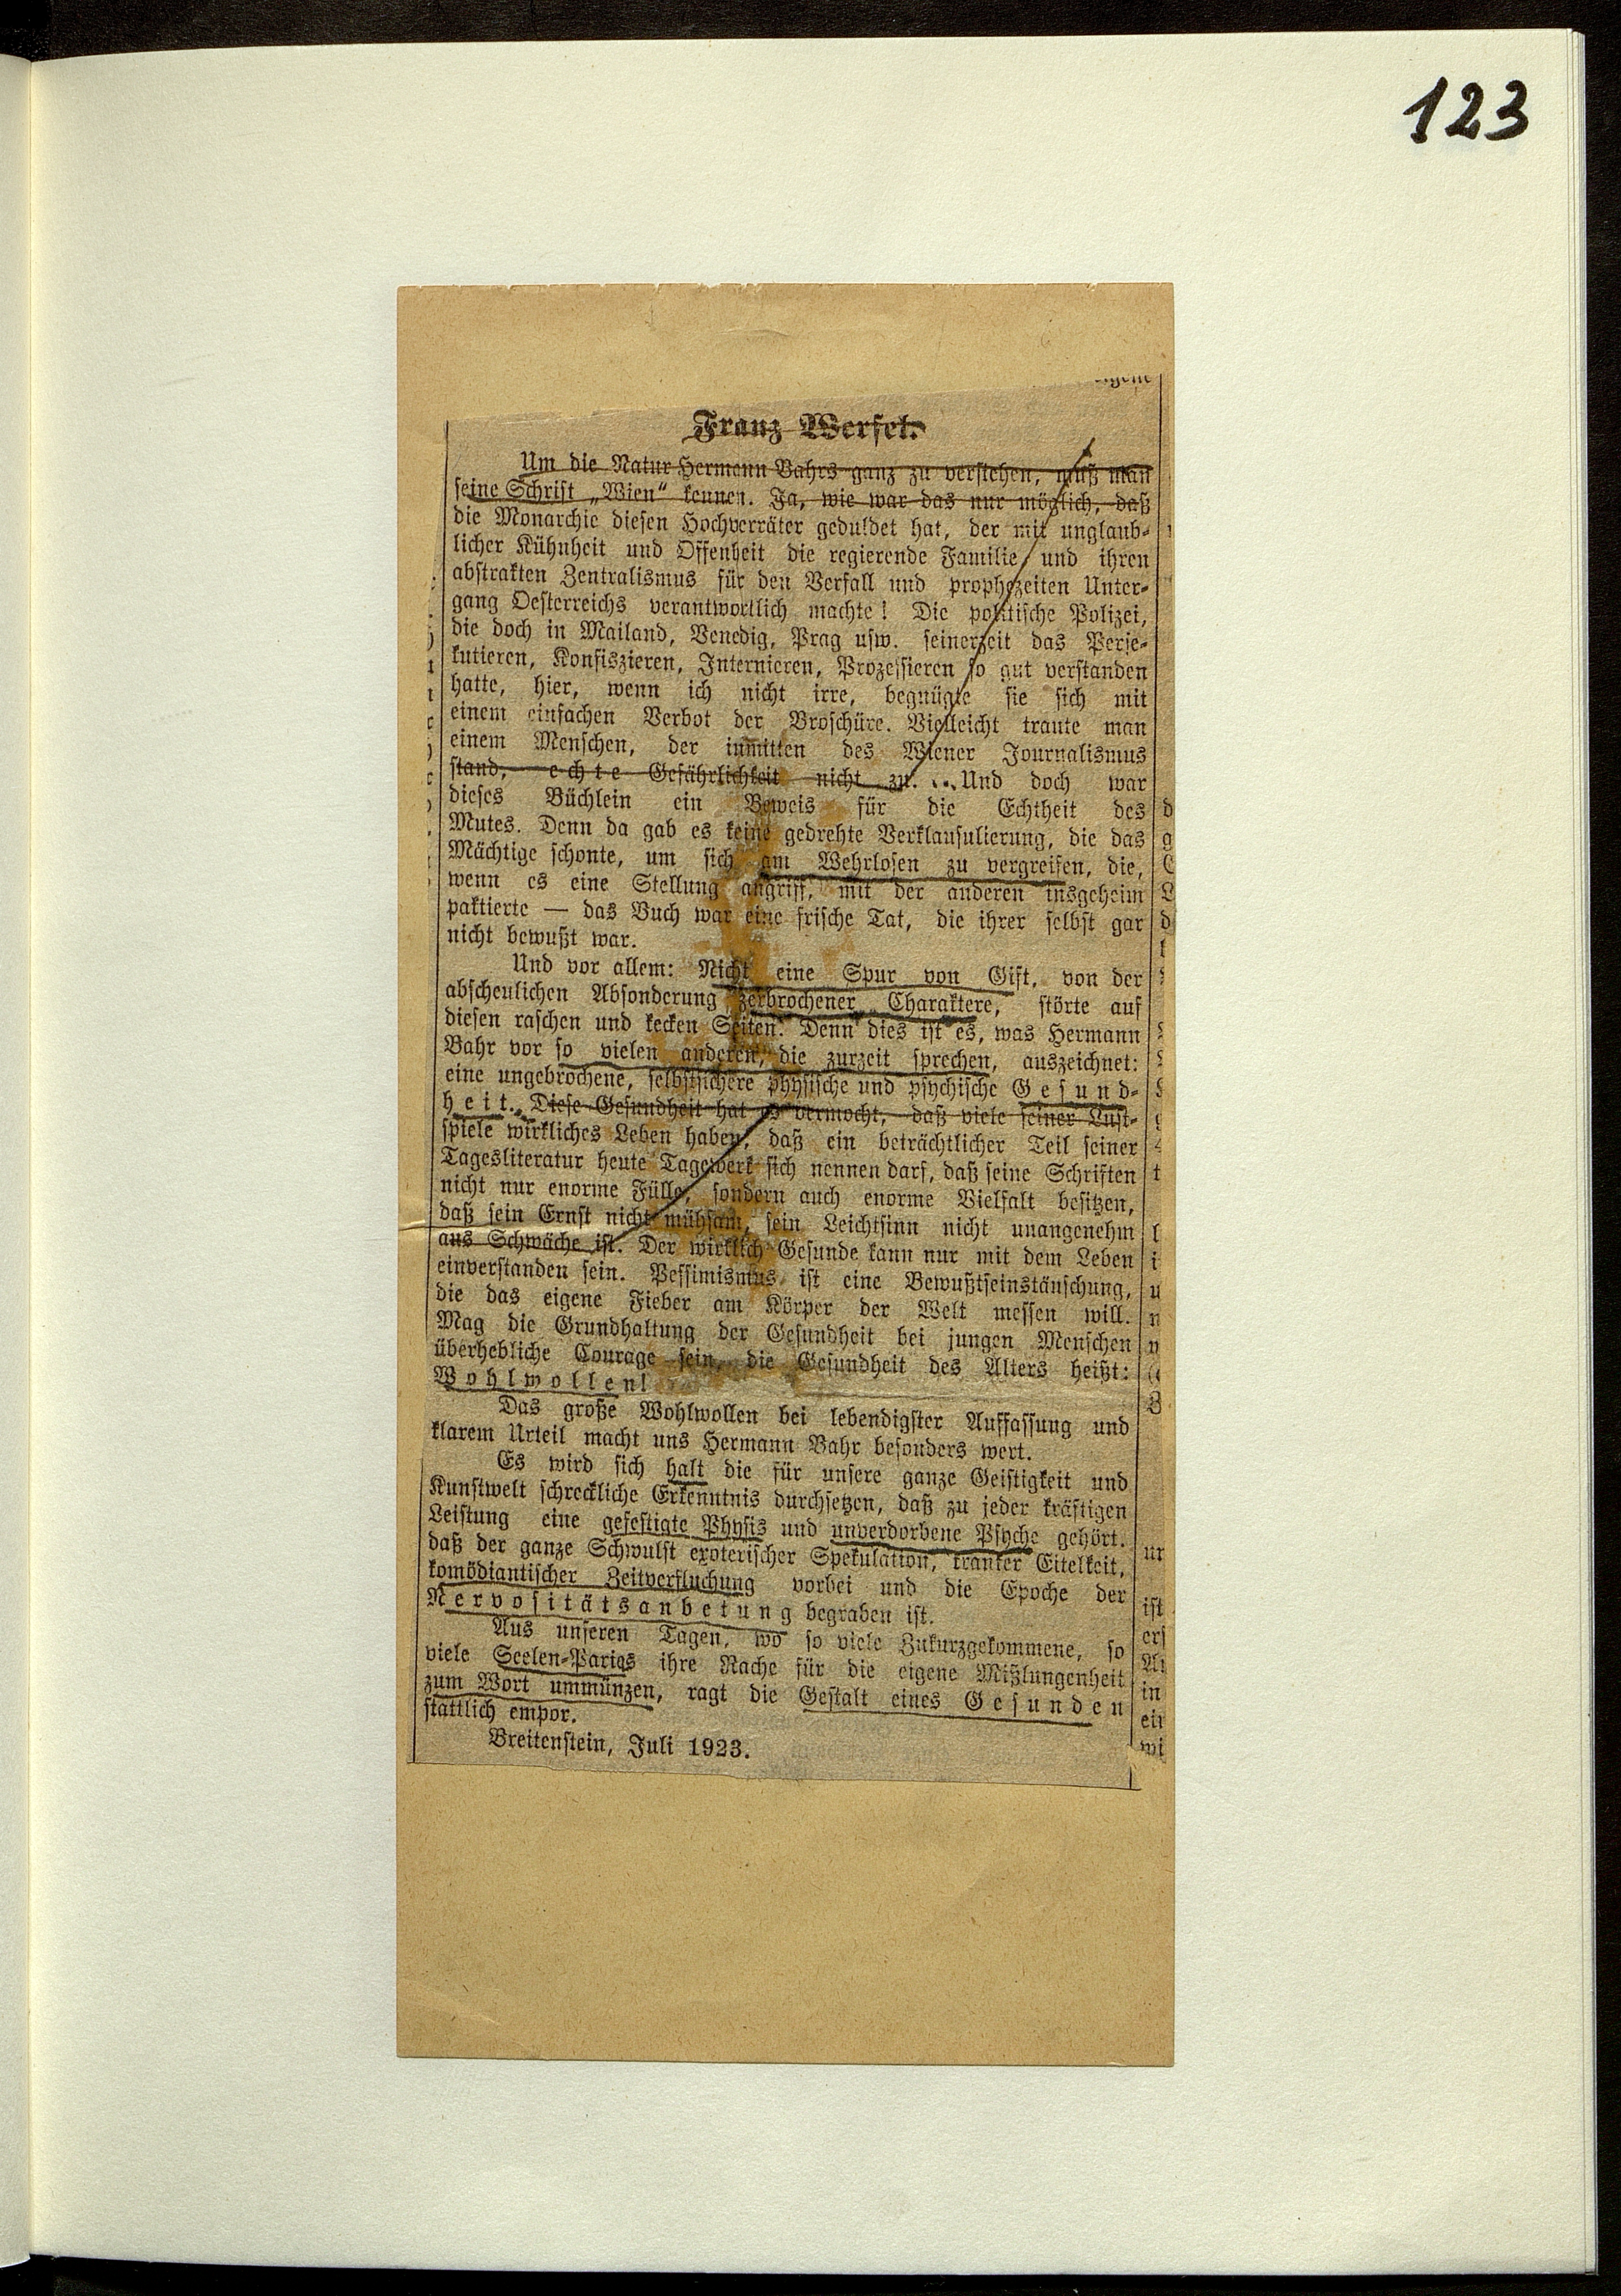 123
Franz Werfel.
Um die Natur Hermann Bahrs ganz zu verstehen, muß man
seine Schrift „Wien“ kennen. Ja, wie war das nur möglich, daß
die Monarchie diesen Hochverräter geduldet hat, der mit unglaub-
licher Kühnheit und Offenheit die regierende Familie und ihren
abstrakten Zentralismus für den Verfall und prophezeiten Unter-
gang Oesterreichs verantwortlich machte! Die politische Polizei,
die doch in Mailand, Venedig, Prag usw. seinerzeit das Perse-
kutieren, Konfiszieren, Internieren, Prozessieren so gut verstanden
hatte, hier, wenn ich nicht irre, begnügte sie sich mit
einem einfachen Verbot der Broschüre. Vielleicht traute man
einem Menschen, der inmitten des Wiener Journalismus
stand, echte Gefährlichkeit nicht zu. .. Und doch war
dieses Büchlein ein Beweis für die Echtheit des
Mutes. Denn da gab es keine gedrehte Verklausulierung, die das
Mächtige schonte, um sich am Wehrlosen zu vergreifen, die,
wenn es eine Stellung angriff, mit der anderen insgeheim
paktierte — das Buch war eine frische Tat, die ihrer selbst gar
nicht bewußt war.
Und vor allem: Nicht eine Spur von Gift, von der
abscheulichen Absonderung zerbrochener Charaktere, störte auf
diesen raschen und kecken Seiten. Denn dies ist es, was Hermann
Bahr vor so vielen anderen, die zurzeit sprechen, auszeichnet:
eine ungebrochene, selbstsichere physische und psychische Gesund-
heit. Diese Gesundheit hat es vermocht, daß viele seiner Lust-
spiele wirkliches Leben haben, daß ein beträchtlicher Teil seiner
Tagesliteratur heute Tagewerk sich nennen darf, daß seine Schriften
nicht nur enorme Fülle, sondern auch enorme Vielfalt besitzen,
daß sein Ernst nicht mühsam, sein Leichtsinn nicht unangenehm
aus Schwäche ist. Der wirklich Gesunde kann nur mit dem Leben
einverstanden sein. Pessimismus ist eine Bewußtseinstäuschung,
die das eigene Fieber am Körper der Welt messen will.
Mag die Grundhaltung der Gesundheit bei jungen Menschen
überhebliche Courage sein, die Gesundheit des Alters heißt:
Wohlwollen!
Das große Wohlwollen bei lebendigster Auffassung und
klarem Urteil macht uns Hermann Bahr besonders wert.
Es wird sich halt die für unsere ganze Geistigkeit und
Kunstwelt schreckliche Erkenntnis durchsetzen, daß zu jeder kräftigen
Leistung eine gefestigte Physis und unverdorbene Psyche gehört.
daß der ganze Schwulst exoterischer Spekulation, kranker Eitelkeit,
komödiantischer Zeitverfluchung vorbei und die Epoche der
Nervositätsanbetung begraben ist.
Aus unseren Tagen, wo so viele Zukurzgekommene, so
viele Seelen-Parias ihre Rache für die eigene Mißlungenheit
zum Wort ummünzen, ragt die Gestalt eines Gesunden
stattlich empor.
Breitenstein, Juli 1923.